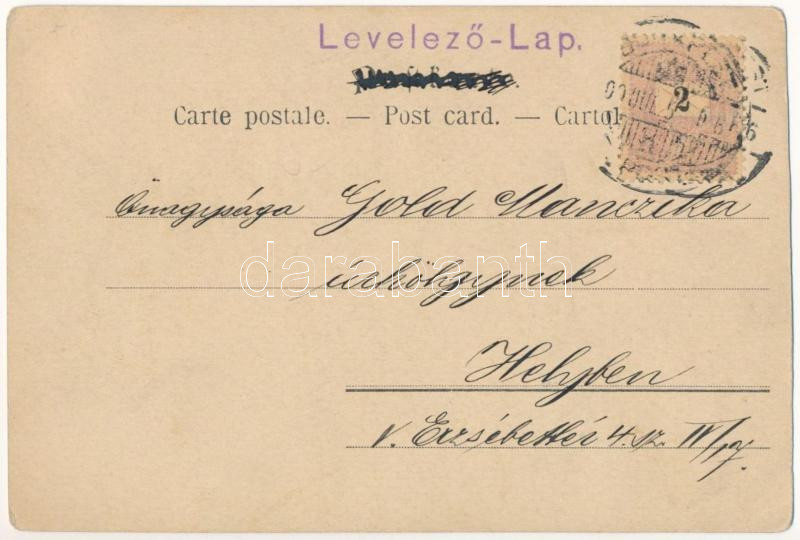 Levelező-Lap.
Carte postale. — Post card. — Cartol
2
Őnagysága Gold Manczika
darabanth
úrhölgynek
Helyben
V. Erzsébettér 4. sz. IV/